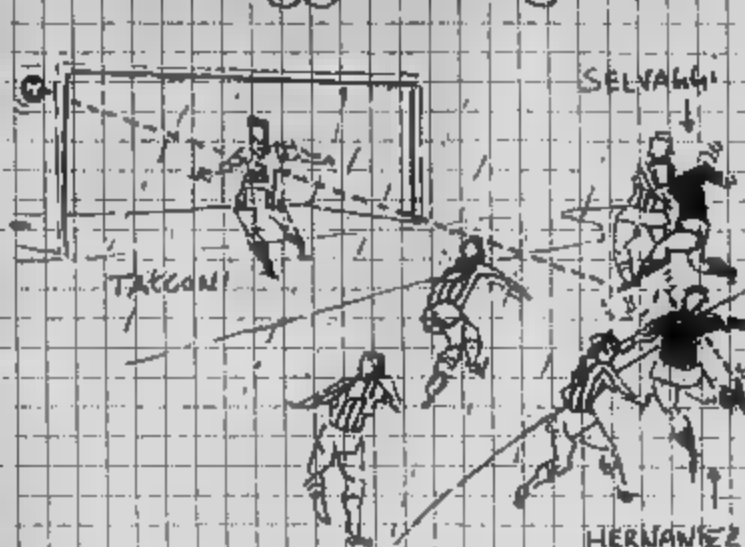 SELVAGGI
TACCONI
HERNANDEZ